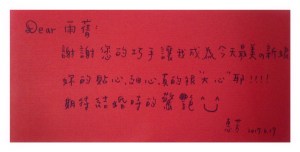 Dear 雨蒨:
謝謝您的巧手讓我成為今天最美的新娘
妳的貼心、細心,真的很"夫心"耶!!!!
期待結婚時的驚艷
2017.6.17